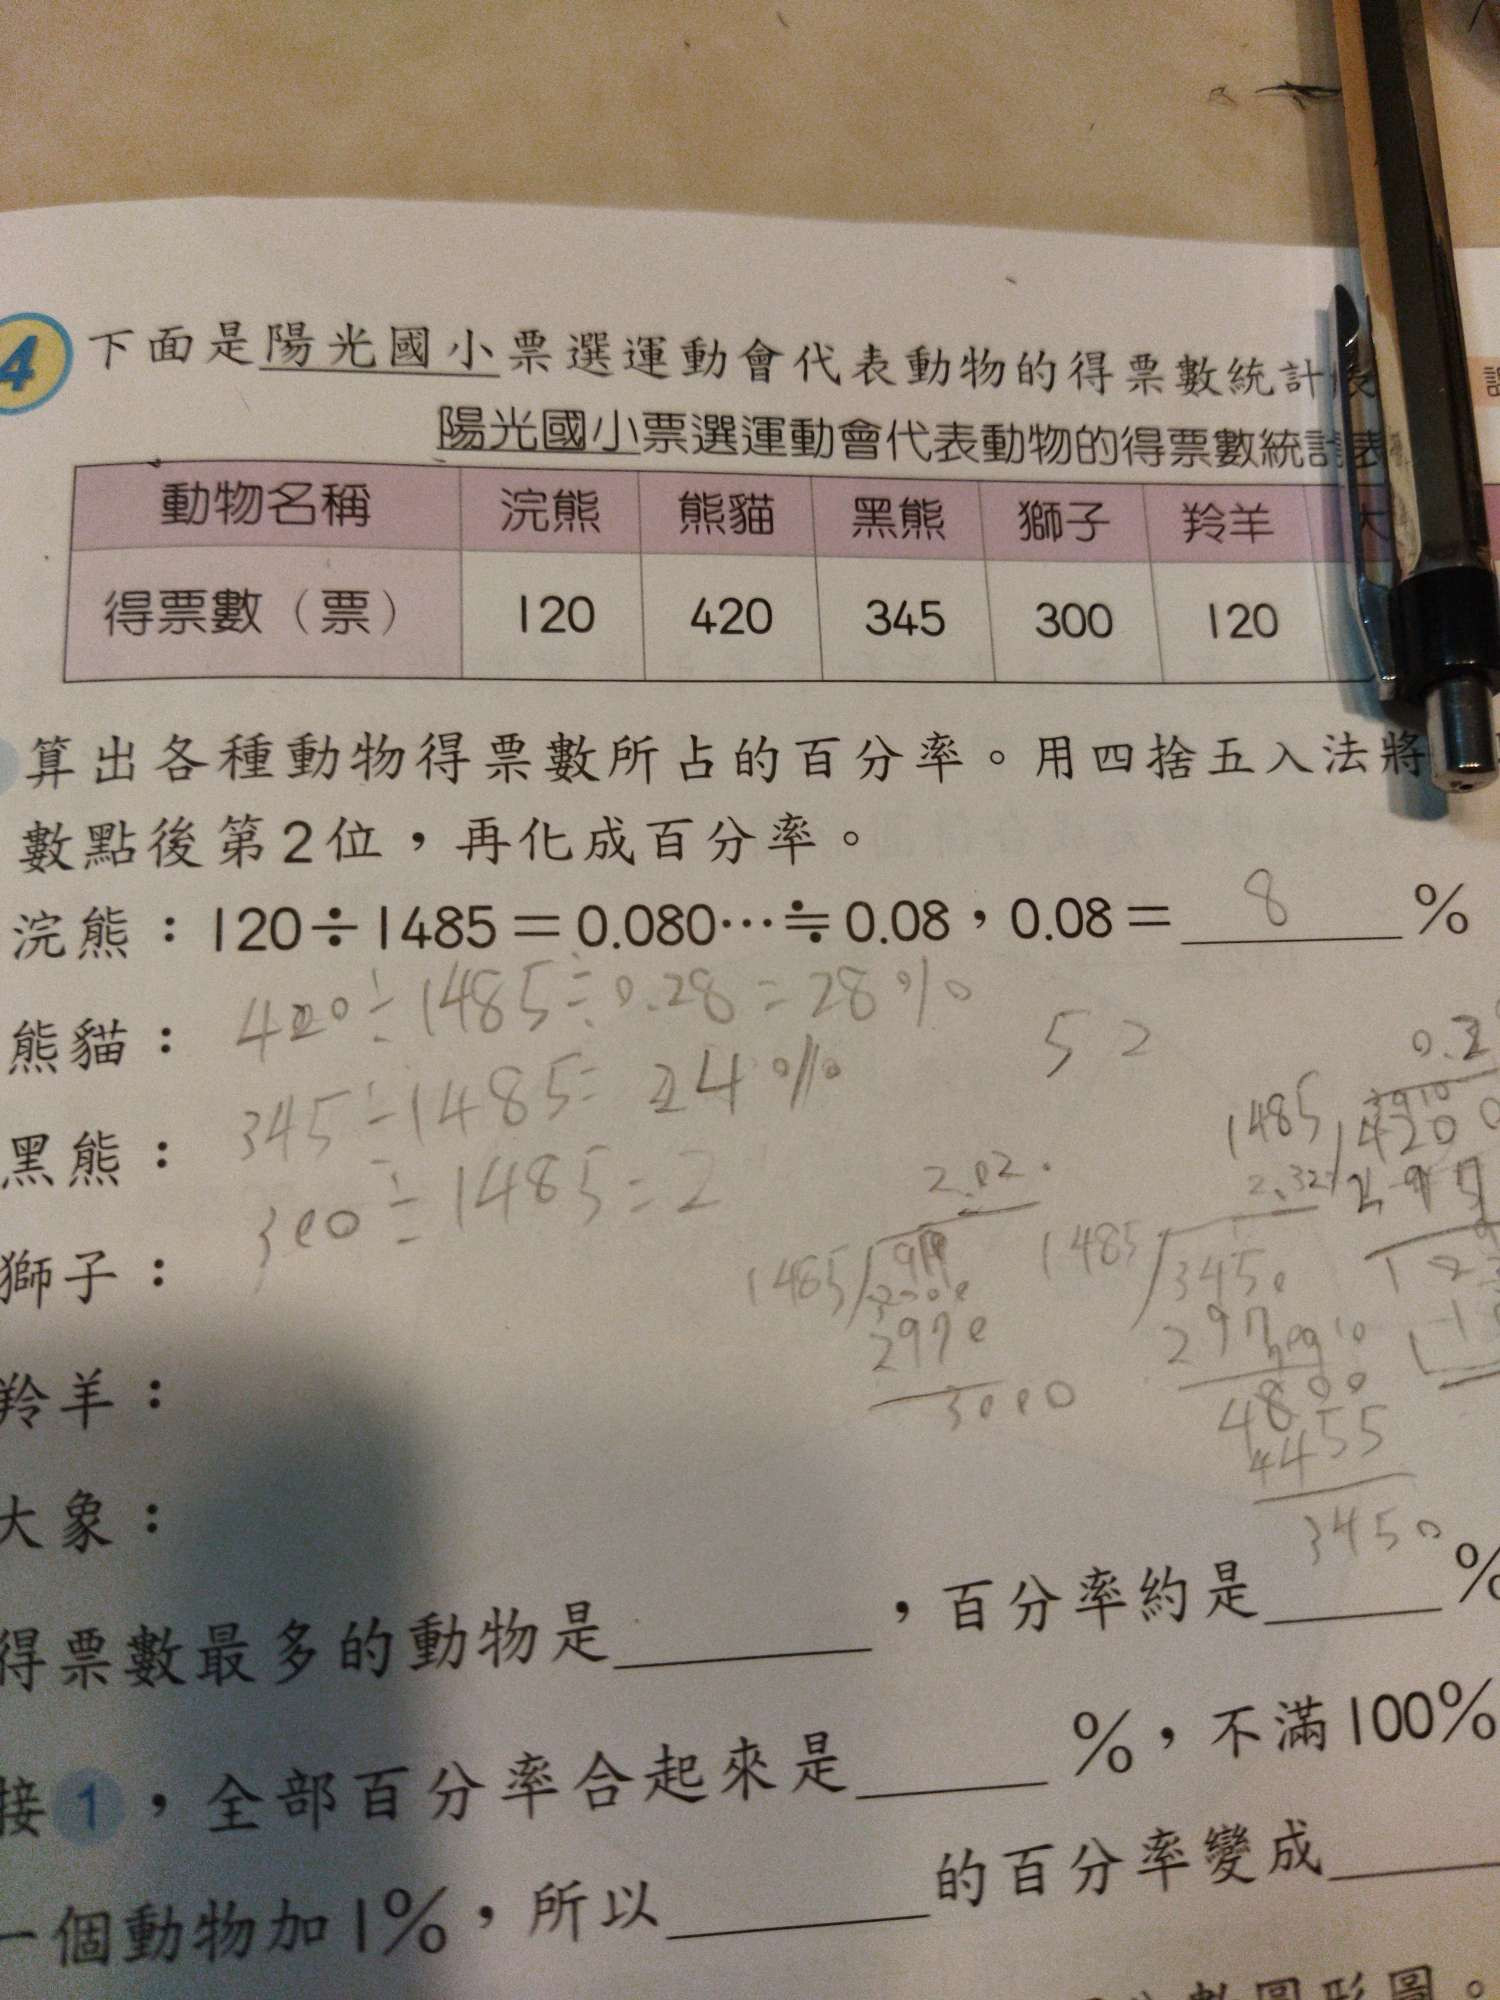 4 下面是陽光國小票選運動會代表動物的得票數統計表
陽光國小票選運動會代表動物的得票數統計表
動物名稱 浣熊 熊貓 黑熊 獅子 羚羊 大
得票數（票） 120 420 345 300 120
算出各種動物得票數所占的百分率。用四捨五入法將
數點後第2位，再化成百分率。
浣熊：120÷1485＝0.080…≒0.08，0.08＝ 8 %
熊貓： 420÷1485≒0.28=28%
黑熊： 345÷1485= 24%
獅子： 300÷1485=2
羚羊：
大象：
52
0.2
1485 4200
2.32
1485 3450
297
4800
4455
3450
2.02
1485
2970
3000
得票數最多的動物是，百分率約是%
接1，全部百分率合起來是%，不滿100%
一個動物加1%，所以的百分率變成
數圓形圖。